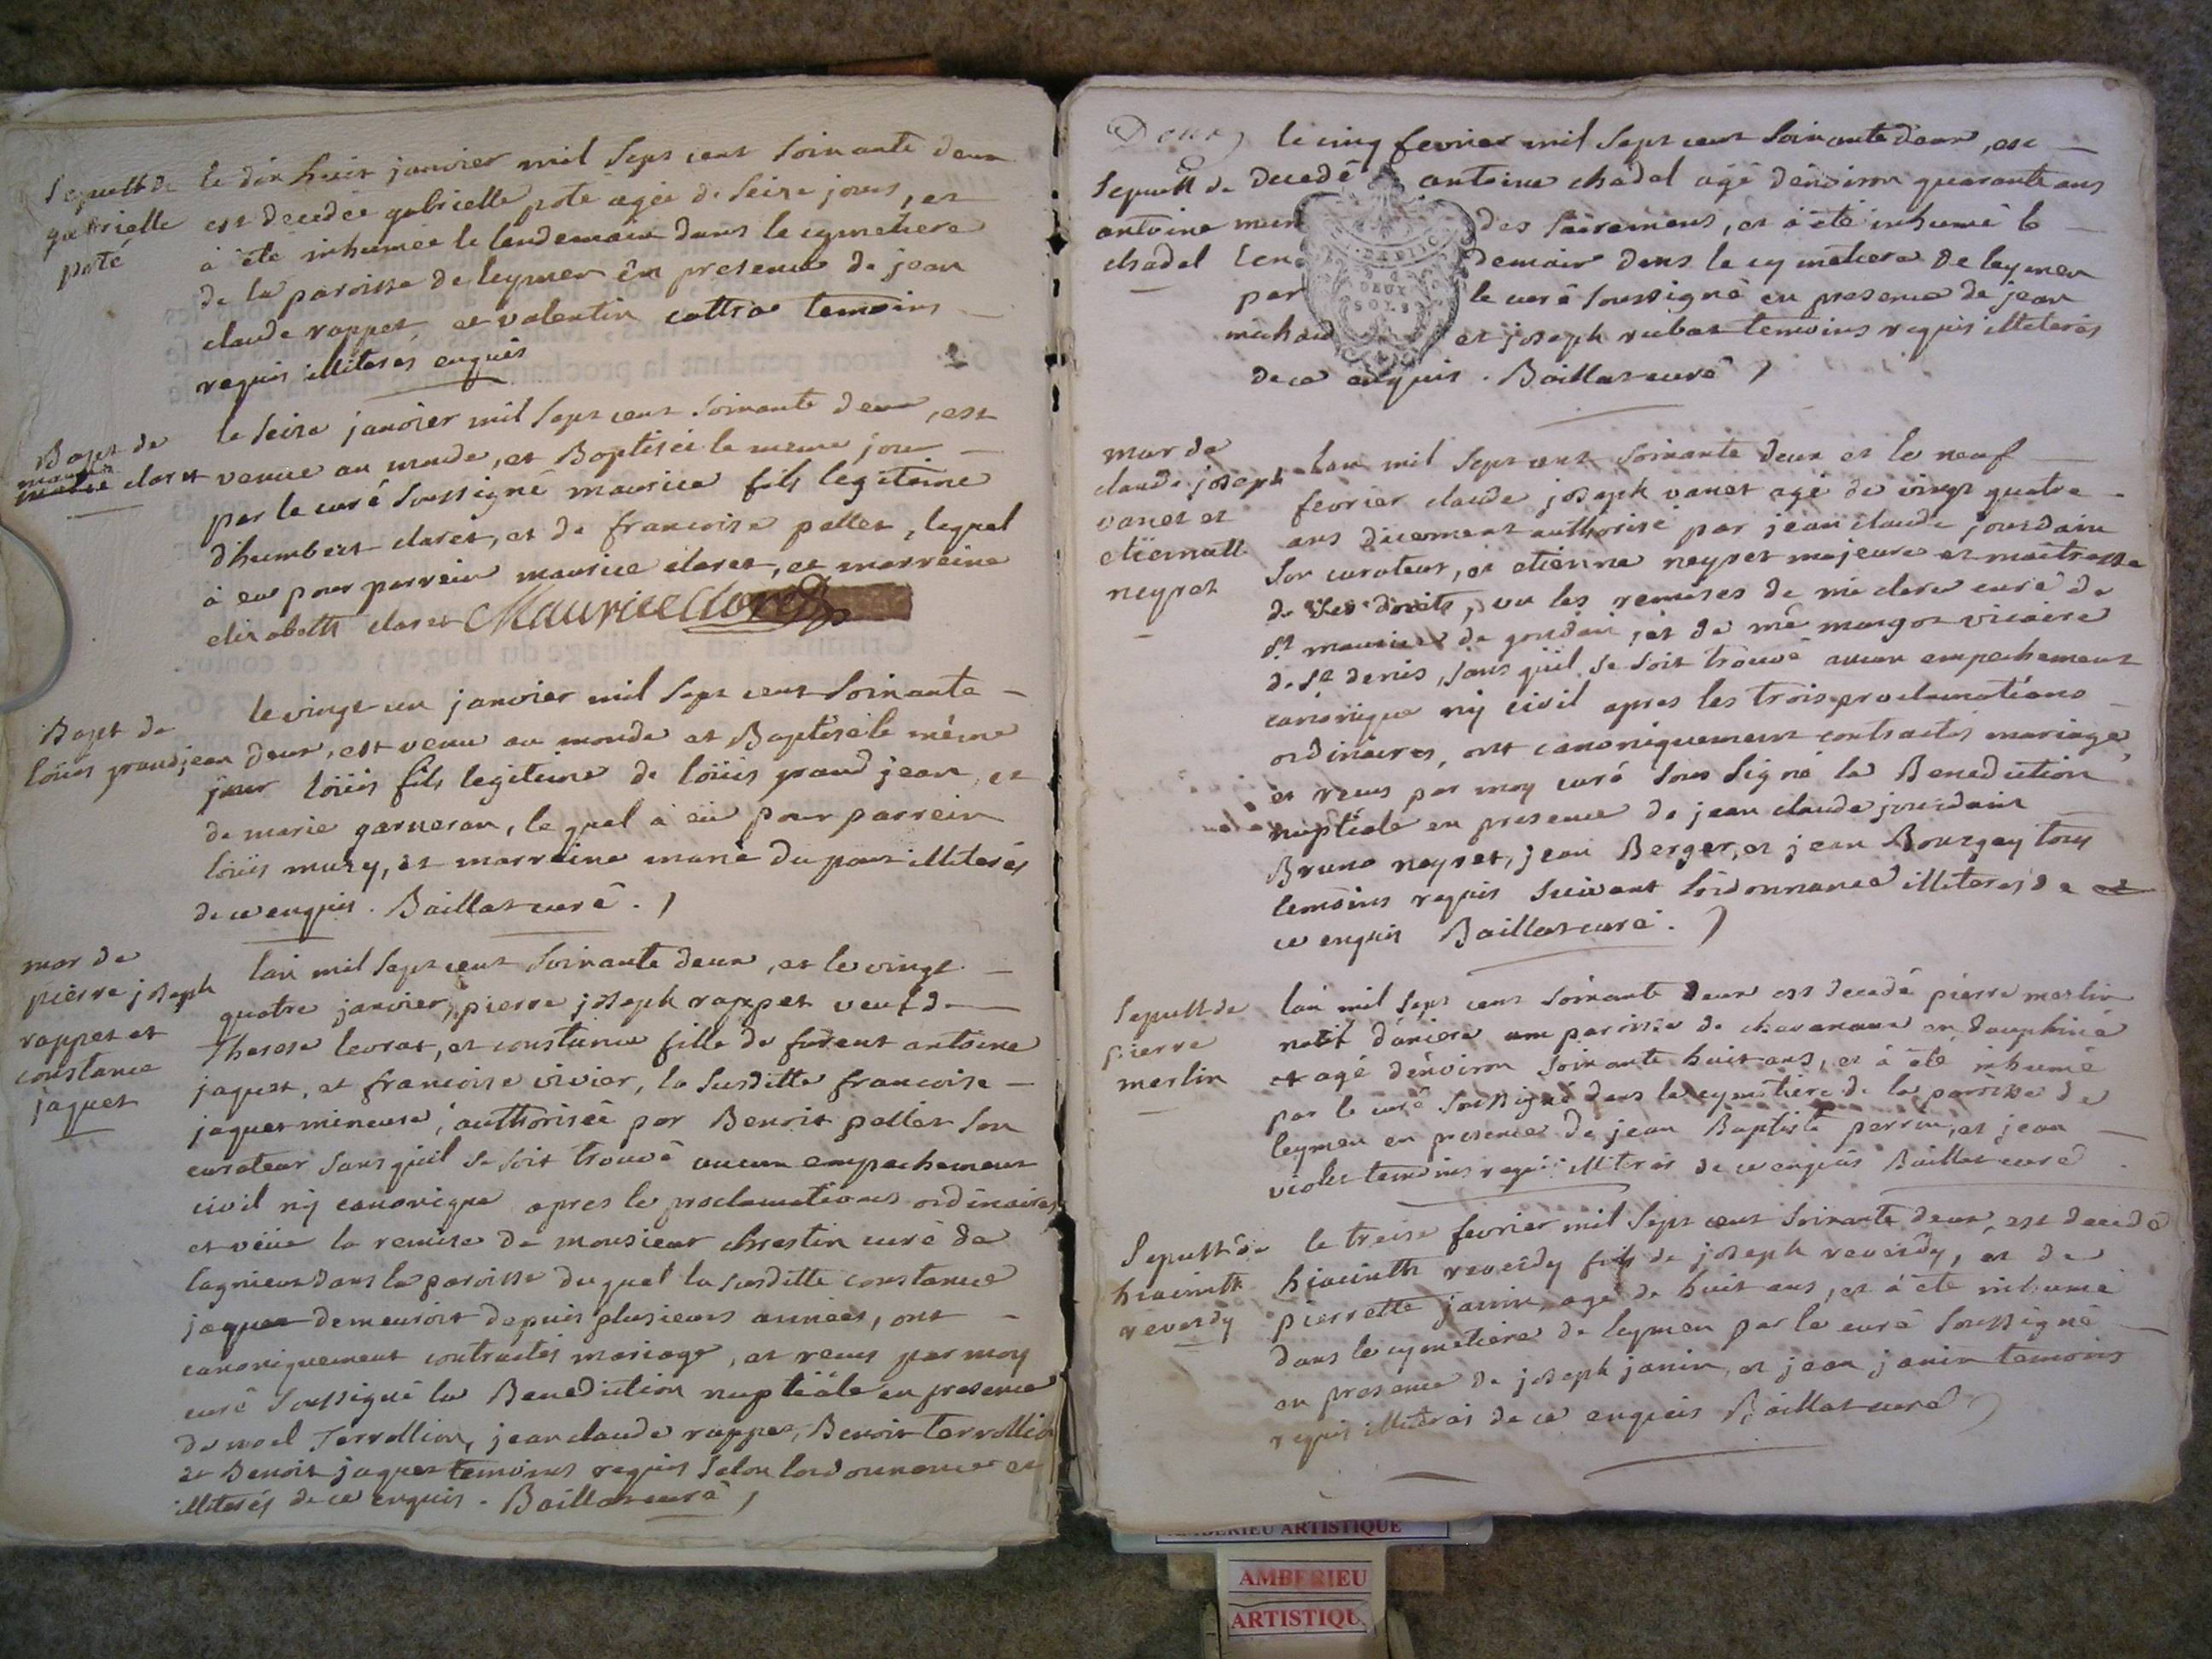 Sepult de
gabrielle
poté
le dix huit janvier mil sept cent soixante deux
est decedée gabrielle poté agée de seize jours, et
à été inhumée le lendemain dans le cymetiere
de la paroisse de leyment en presence de jean
claude rappet et valentin temoins
requis illiterés enquis
Bapt de
claret
le seize janvier mil sept cent soixante deux, est
venue au monde, et Baptisée le meme jour
par le curé soussigné maurice fils legitime
d'humbert claret, et de francoise pellet, lequel
à eu pour parrein maurice claret, et marreine
elisabeth claret Maurice Claret
Bapt de
loüis grandjean
le vingt un janvier mil sept cent soixante
deux, est venu au monde et Baptisé le même
jour loüis fils legitime de loüis grand jean, et
de marie garneran, le quel à eü pour parrein
loüis mury, et marreine marie dupont illiterés
de ce enquis. Baillat curé.
mar de
pierre joseph
rappet et
constance
jaquet
lan mil sept cent soixante deux, et le vingt
quatre janvier, pierre joseph rappet veuf de
therese levrat, et constance fille de furent antoine
jaquet, et francoise vivier, la susditte francoise
jaquet mineure, authorisée par Benoit pellet son
curateur sans quil se soit trouvé aucun empechement
civil ny canonique apres le proclamations ordinaires
et veüe la remise de monsieur chrestin curé de
lagnieu dans la paroisse du quel la susditte constance
jaquet demeuroit depuis plusieurs années, ont
canoniquement contractés mariage, et recus par moy
curé soussigné la Benediction nuptiale en presence
de noel Terrollion, jean claude rappet, Benoit terrollion
et Benoit jaquet temoins requis selon lordonnance et
illiterés de ce enquis. Baillat curé
Deux
Sepult de
antoine
chadel
le cinq fevrier mil sept cent soixante deux, est
decedé antoine chadel agé d'environ quarante ans
muni des sacremens, et à été inhumé le
len demain dans le cymetiere de leyment
par le curé soussigné en presence de jean
michaud et joseph rubat temoins requis illiterés
de ce enquis. Baillat curé
DEUX
SOLS
mar de
claude joseph
vanet et
etiennette
neyret
lan mil sept cent soixante deux et le neuf
fevrier claude joseph vanet agé de vingt quatre
ans duement authorisé par jean claude jourdain
son curateur, et etienne neyret majeure et maitresse
de ses droits, vu les remises de mr claret curé de
st maurice de gourdan, et de mr margot vicaire
de st denis, sans quil se soit trouvé aucun empechement
canonique ny civil apres les trois proclamations
ordinaires, ont canoniquement contractés mariage,
et recus par moy curé sous signé la Benediction
nuptiale en presence de jean claude jourdain
Bruno neyret, jean Berger, et jean Bourgey tous
temoins requis suivant lordonnance illiterés de
ce enquis Baillat curé.
Sepult de
pierre
merlin
lan mil sept cent soixante deux est decedé pierre merlin
natif paroisse de en dauphiné
et agé d'environ soixante huit ans, et à été inhumé
par le curé soussigné dans le cymetiere de la paroisse de
leyment en presence de jean Baptiste perrin, et jean
violet temoins requis illiterés de ce enquis Baillat curé
Sepult de
hiacinth
reverdy
le treize fevrier mil sept cent soixante deux, est decedé
hiacinth reverdy fils de joseph reverdy, et de
pierrette janin, agé de huit ans, et à été inhumé
dans le cymetiere de leyment par le curé soussigné
en presence de joseph janin, et jean janin temoins
requis illiterés de ce enquis Baillat curé
AMBERIEU ARTISTIQUE
AMBERIEU
ARTISTIQU